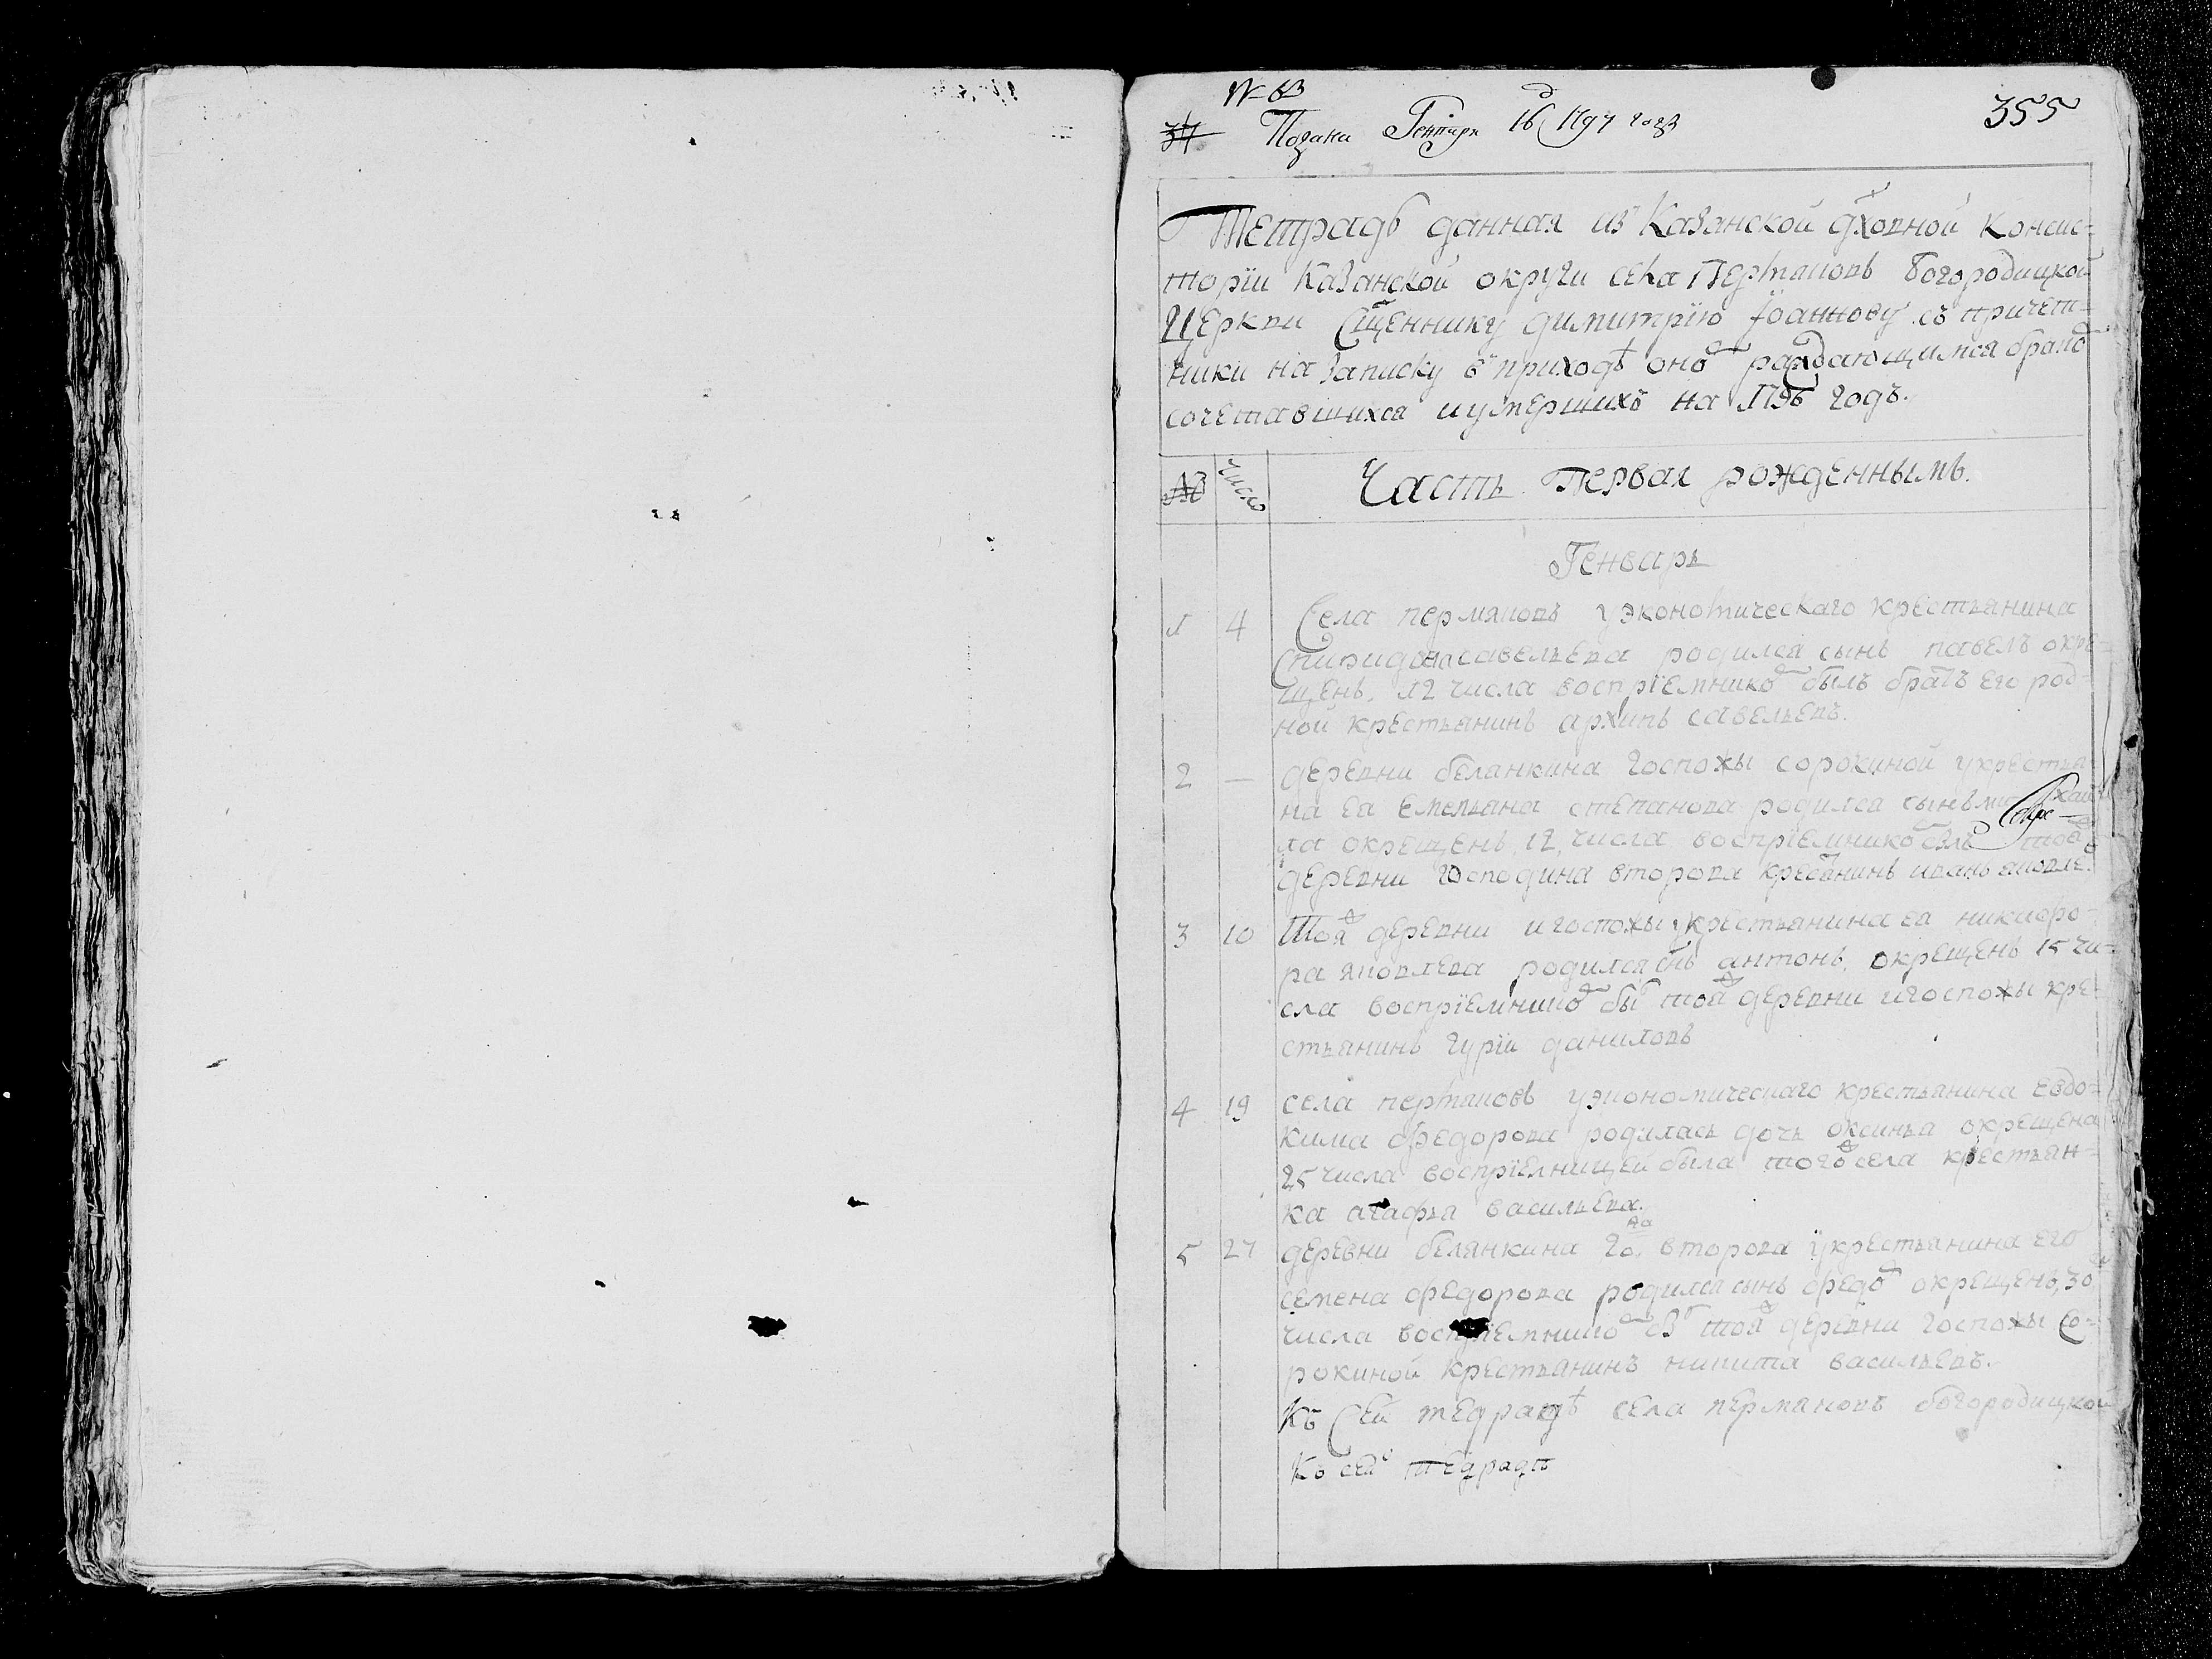 № 63
37 Подана Генваря 16 д 1797 года
355
Тетрадь данная из Казанской дховной Консис=
торïи Казанской округи села Пермяковъ Богородицкой
Церкви Сщеннику димитрïю Iоаннову съ причет=
ники на Записку в приходѣ оно раждающимся брако
сочетавшихся и умершихъ на 1796 годъ.
№ Число Часть Первая рожденнымъ.
Генварь
1 4 Села пермяковъ у экономическаго крестьянина
Спиридона савельева родился сынъ павелъ окре=
щенъ. 12 числа воспрïемнико былъ братъ его род=
ной крестьянинъ архипъ савельевъ.
2 — деревни белянкина госпожы сорокиной у крестья
на ея емельяна степанова родился сынъ михаи
ла окрещенъ, 12, числа воспрïемнико былъ тоя
деревни господина второва крестьнинъ иванъ яковле.
3 10 Тоя деревни и госпожы у крестьянина ея никифо=
ра яковлева родился снъ антонъ, окрещенъ 15 чи=
сла воспрïемнико бы тоя деревни и госпожы кре=
стьянинъ гурïй даниловъ
4 19 села пермяковъ у экономическаго крестьянина евдо=
кима федорова родилась дочь оксинья окрещена
25 числа воспрïемницей была того села крестьян=
ка агафья васильева.
5 27 деревни белянкина го. второва у крестьянина его
семена федорова родился сынъ федо окрещенъ, 30
числа воспрïемнико бы тоя деревни госпожы Со=
рокиной крестьянинъ никита васильевъ.
Къ Сей тедрадѣ села пермяковъ богородицкой
Къ сей тедради